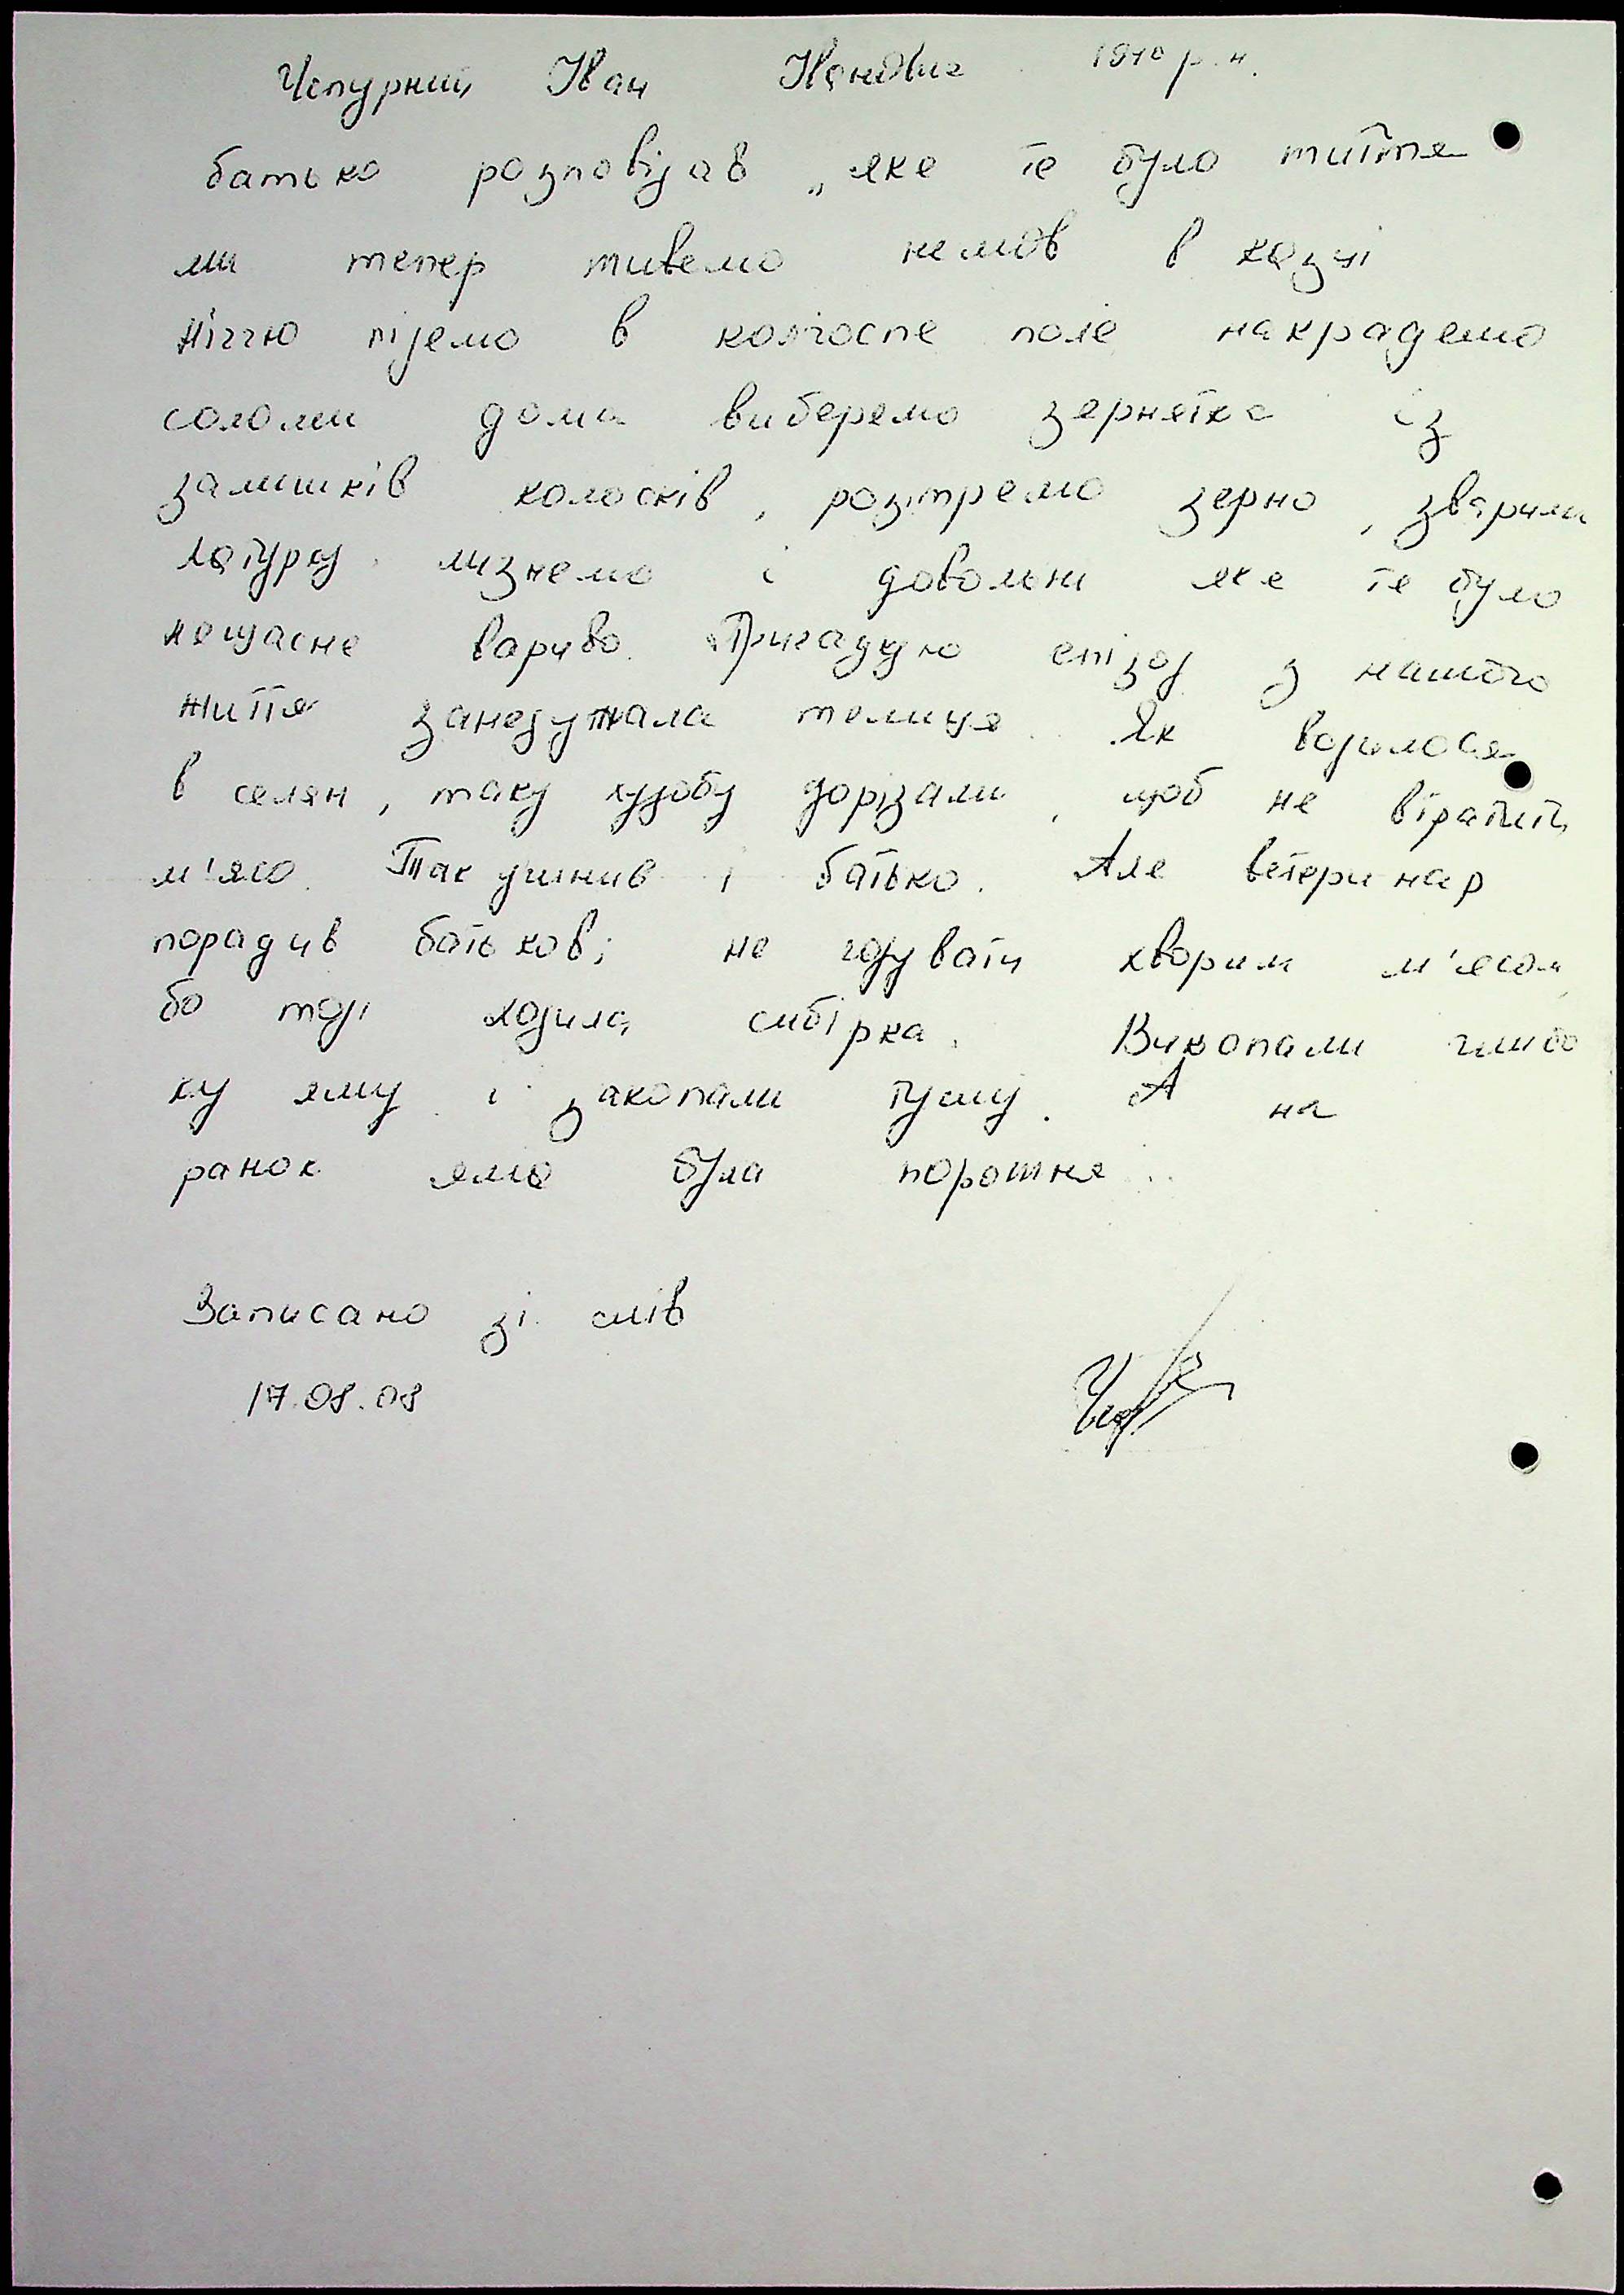 Чепурний Іван Іванович 1940 р.н.
батько розповідав „яке те було життя
ми тепер живемо немов в казці
Ніччю підемо в колгоспе поле накрадемо
соломи дома виберемо зернятка із
залишків колосків, розітремо зерно, зварили
затірку лизнемо і довольні яке те було
нещасне вариво. Пригадую епізод з нашого
життя занедужала телиця. Як водилося
в селян, таку худобу дорізали, щоб не втратить
м'ясо. Так учинив і батько. Але ветеринар
порадив батькові не годувати хворим м'ясом,
бо тоді ходила сибірка. Викопали глибо
ку яму і закопали тушу. А на
ранок яма була порожня.
Записано зі слів
17.08.08